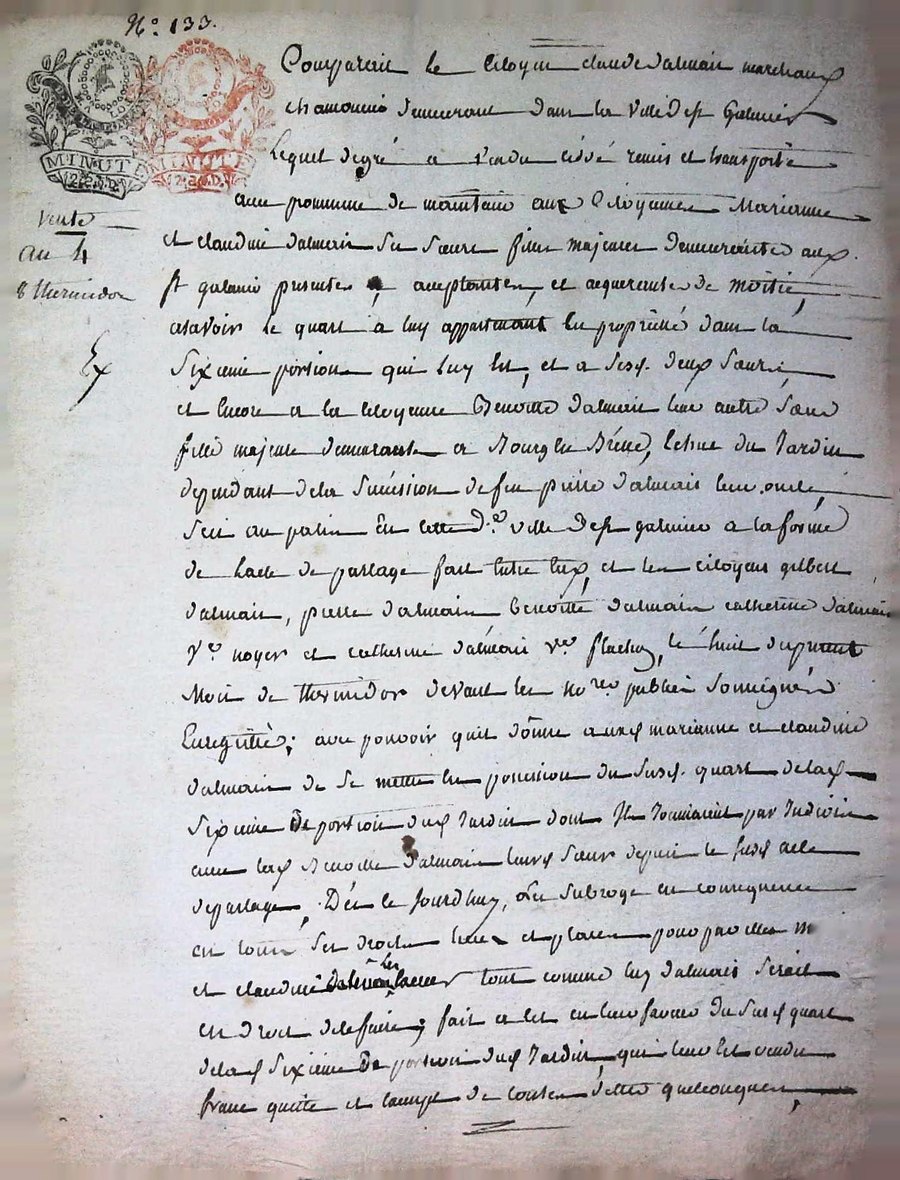 N.o 133.
MINUTE MINUTE
Vente
an 4
8 thermidor
Ex
Comparerit le Citoyen claude dalmais marchand
chamourier demeurant dans la ville de st Galmier
Lequel degré a vendu cédé remis et transporté
avec promesse de maintenir aux Citoyennes Marianne
et claudine dalmais ses sœurs filles majeures demeurantes aud.
st galmier presentes acceptantes, et acquereuses de moitié,
asavoir le quart a luy appartenant en propriété dans la
Sixieme portion qui luy est, et a sesd. deux sœurs
et encore a la citoyenne Benoitte dalmais leur autre sœur
fille majeure demeurante a Bourg en Bresse, Echue du Jardin
dependant dela succession de feu pierre dalmais leur oncle,
scis au en cette d.e ville de st galmier a la forme
de lacte de partage fait entre eux, et les citoyens gilbert
dalmais, pierre dalmais benoitte dalmais catherine dalmais
v.e noyer et catherine dalmais v.e flachon, le huit du present
Mois de thermidor devant les no.res publics soussignés
Enregistré; avec pouvoir quil donne auxd. marianne et claudine
dalmais de se mettre en possession du susd. quart delad.
Sixieme portion dud. Jardin dont Ils Jouissaient par Indivis
avec lad. Benoitte dalmais leurd. sœur depuis le susd. acte
departage, Dès ce Jourdhuy, Les subroge en consequence
en tous ses droits lieux et places pour par elles m
et claudine dalmais les tout comme luy dalmais serait
en droit de le faire; fait et est en leur faveur du susd. quart
delad. sixieme portion dud. Jardin, qui leur est vendu
franc quitte et exempt de toutes dettes quelconques,